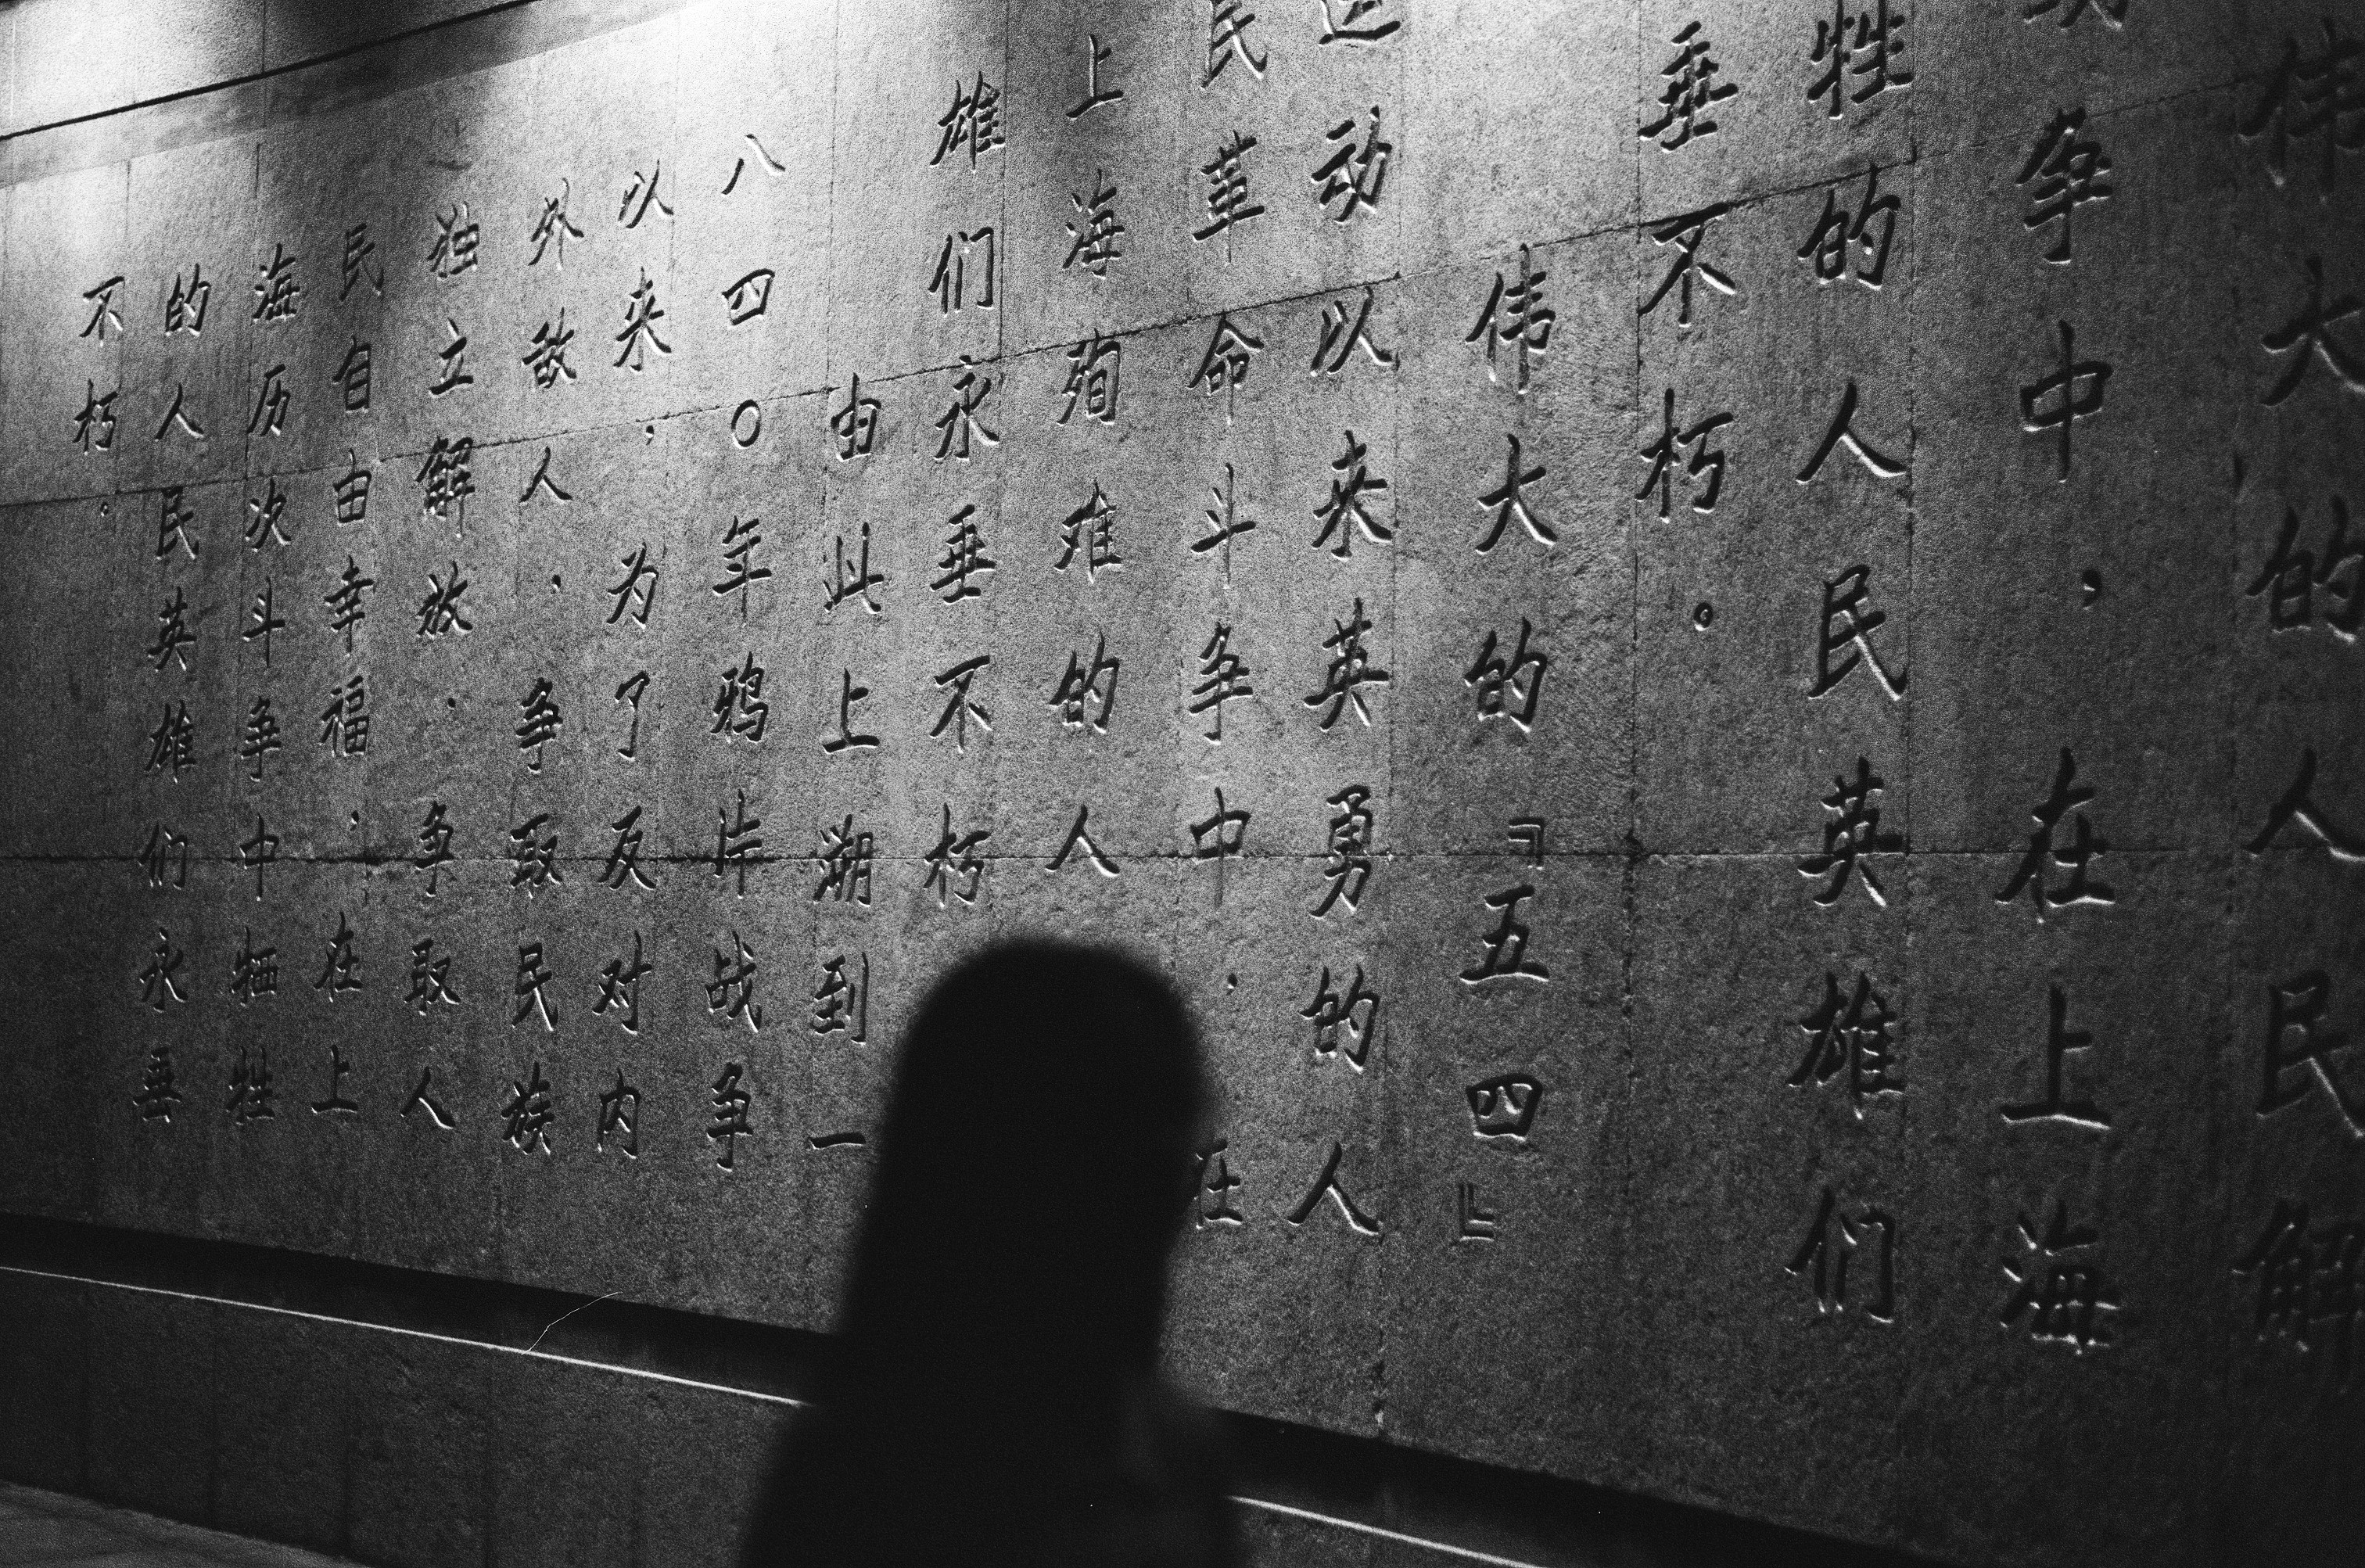 伟大的人民解
争中，在上海
牲的人民英雄们
垂不朽。
伟大的『五四』
运动以来英勇的人
民革命斗争中，在
上海殉难的人
雄们永垂不朽
由此上溯到一
八四〇年鸦片战争
以来，为了反对内
外敌人，争取民族
独立解放，争取人
民自由幸福，在上
海历次斗争中牺牲
的人民英雄们永垂
不朽。